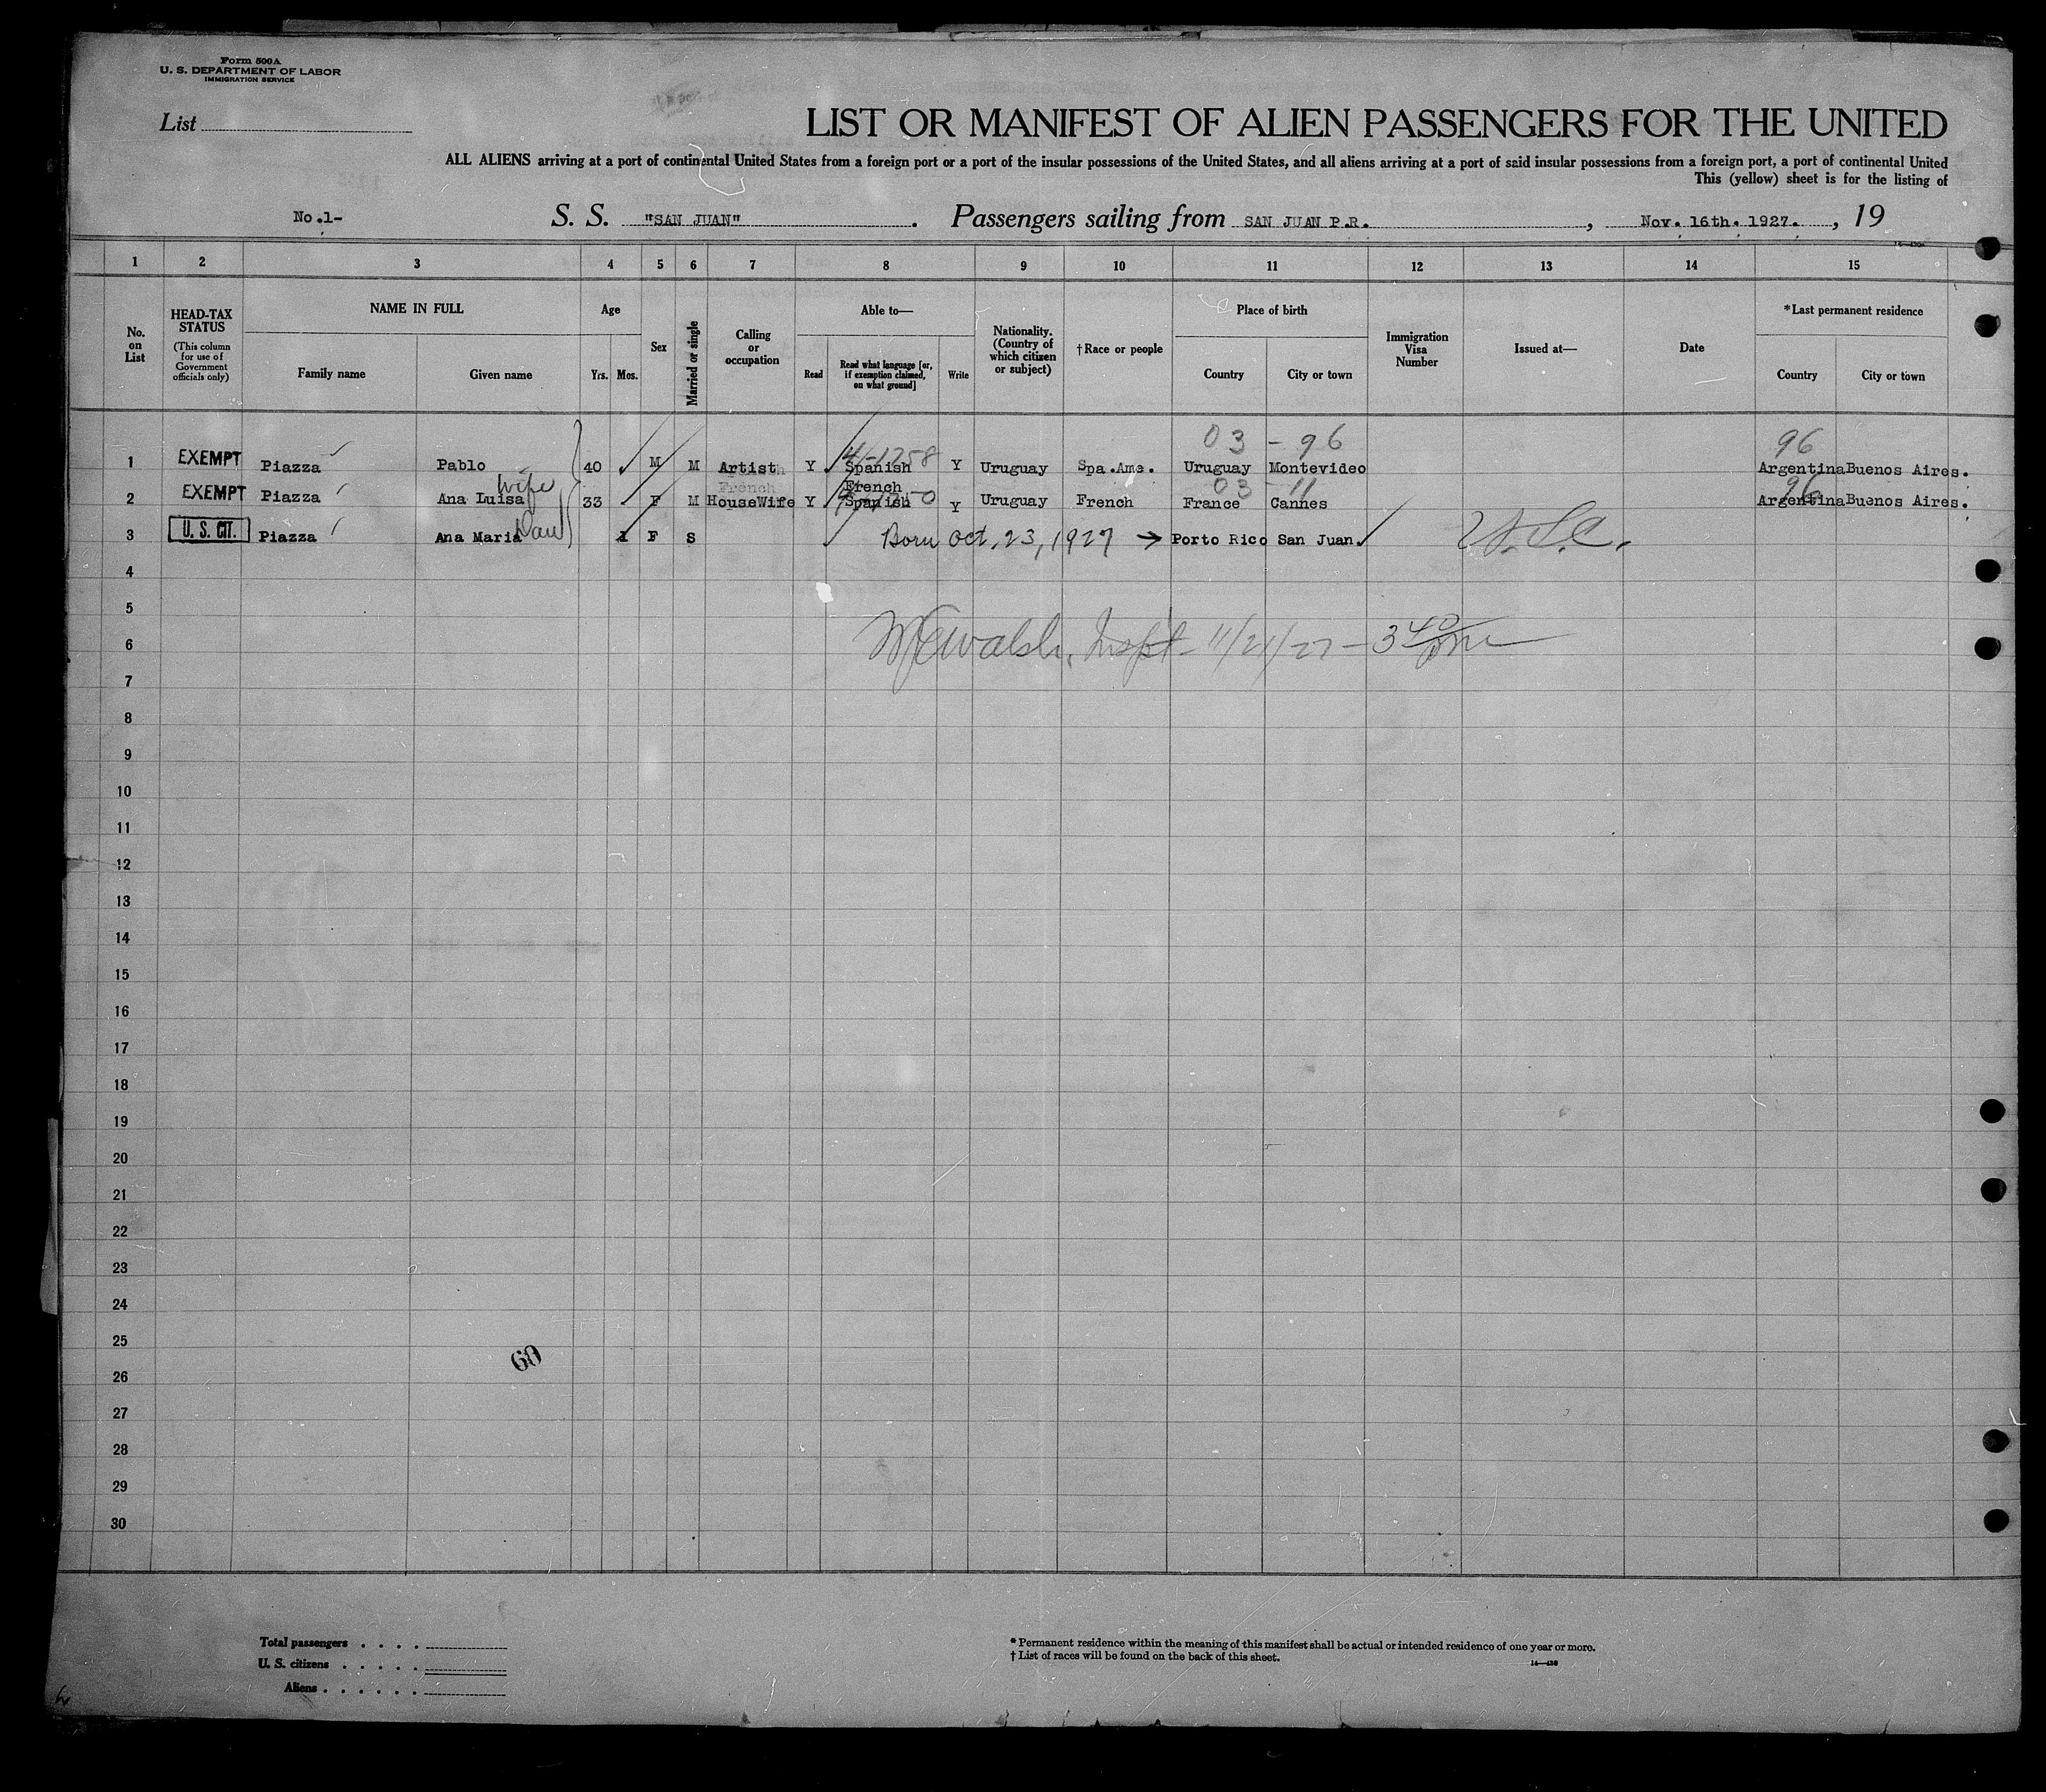 Form 500A
U. S. DEPARTMENT OF LABOR
IMMIGRATION SERVICE
List
LIST OR MANIFEST OF ALIEN PASSENGERS FOR THE UNITED
ALL ALIENS arriving at a port of continental United States from a foreign port or a port of the insular possessions of the United States, and all aliens arriving at a port of said insular possessions from a foreign port, a port of continental United
This (yellow) sheet is for the listing of
No.1- S. S. "SAN JUAN". Passengers sailing from SAN JUAN P.R., Nov. 16th. 1927., 19
1 2 3 4 5 6 7 8 9 10 11 12 13 14 15
No. on List
HEAD-TAX STATUS
(This column for use of Government officials only)
NAME IN FULL
Family name Given name
Age
Yrs. Mos.
Sex
Married or single
Calling or occupation
Able to—
Read
Read what language [or, if exemption claimed, on what ground]
Write
Nationality. (Country of which citizen or subject)
†Race or people
Place of birth
Country City or town
Immigration Visa Number
Issued at—
Date
*Last permanent residence
Country City or town
03 - 96 96
1 EXEMPT Piazza Pablo 40 M M Artist Y Spanish Y Uruguay Spa.Ame. Uruguay Montevideo Argentina Buenos Aires.
wife French French 03 - 11 96
2 EXEMPT Piazza Ana Luisa 33 F M HouseWife Y Spanish Y Uruguay French France Cannes Argentina Buenos Aires.
3 U. S. CIT. Piazza Ana Maria Dau 1 F S Born Oct. 23, 1927 → Porto Rico San Juan. U.S.C.
4
5
6 Walsh, Inspt - 11/21/27 - 3 40 pm
7
8
9
10
11
12
13
14
15
16
17
18
19
20
21
22
23
24
25
60
26
27
28
29
30
Total passengers . . . .
U. S. citizens . . . . .
Aliens . . . . . .
* Permanent residence within the meaning of this manifest shall be actual or intended residence of one year or more.
† List of races will be found on the back of this sheet.